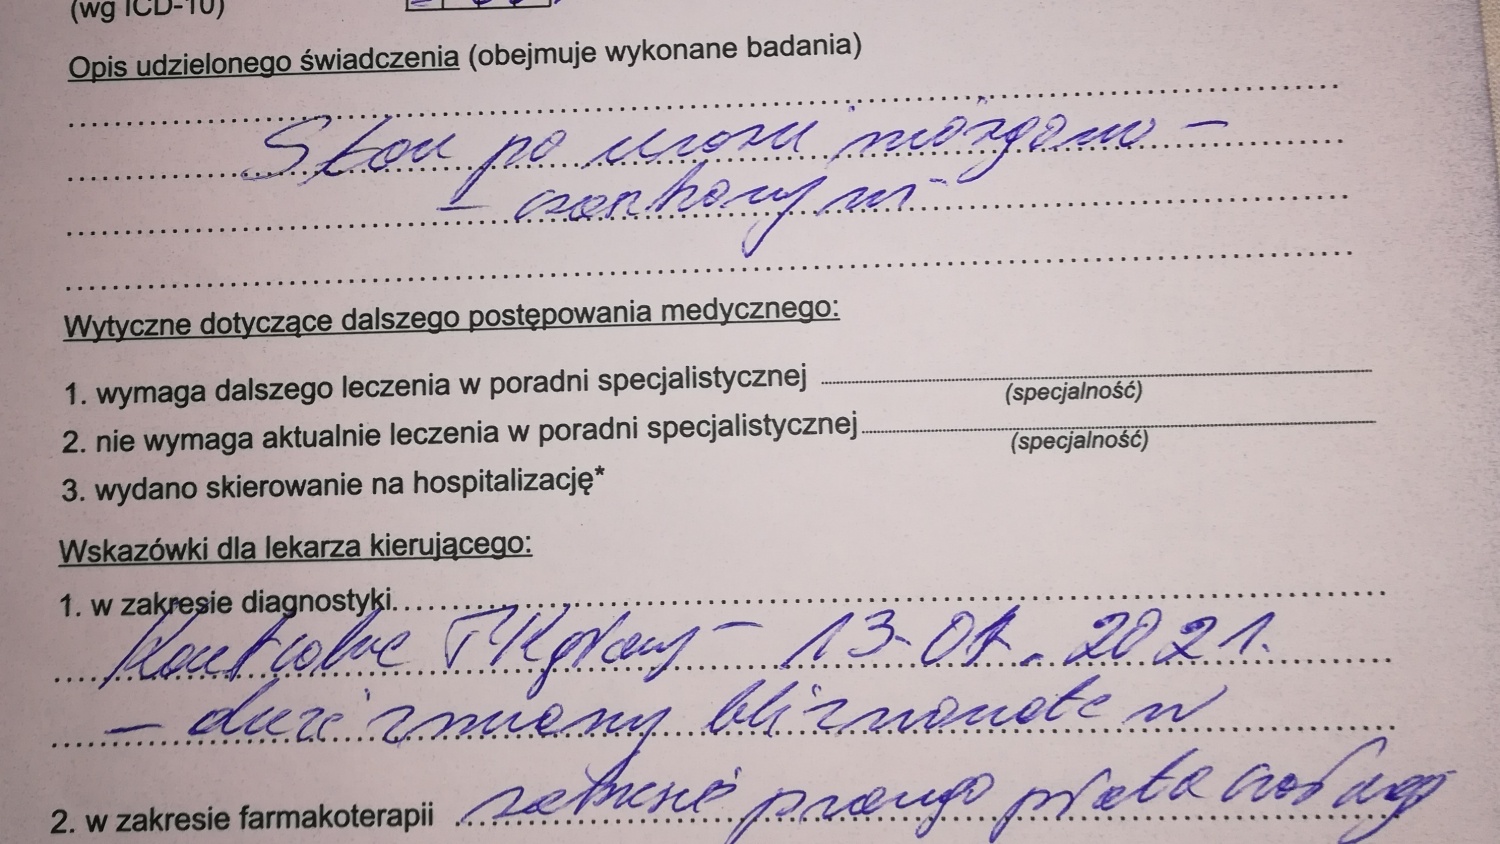 (wg ICD-10)
Opis udzielonego świadczenia (obejmuje wykonane badania)
Stan po urazu mózgowo -
- czaszkowym
Wytyczne dotyczące dalszego postępowania medycznego:
1. wymaga dalszego leczenia w poradni specjalistycznej
(specjalność)
2. nie wymaga aktualnie leczenia w poradni specjalistycznej
(specjalność)
3. wydano skierowanie na hospitalizację*
Wskazówki dla lekarza kierującego:
1. w zakresie diagnostyki
Kontrolne TK głowy - 13.01.2021.
- duże zmiany bliznowate w
2. w zakresie farmakoterapii zakresie prawego płata